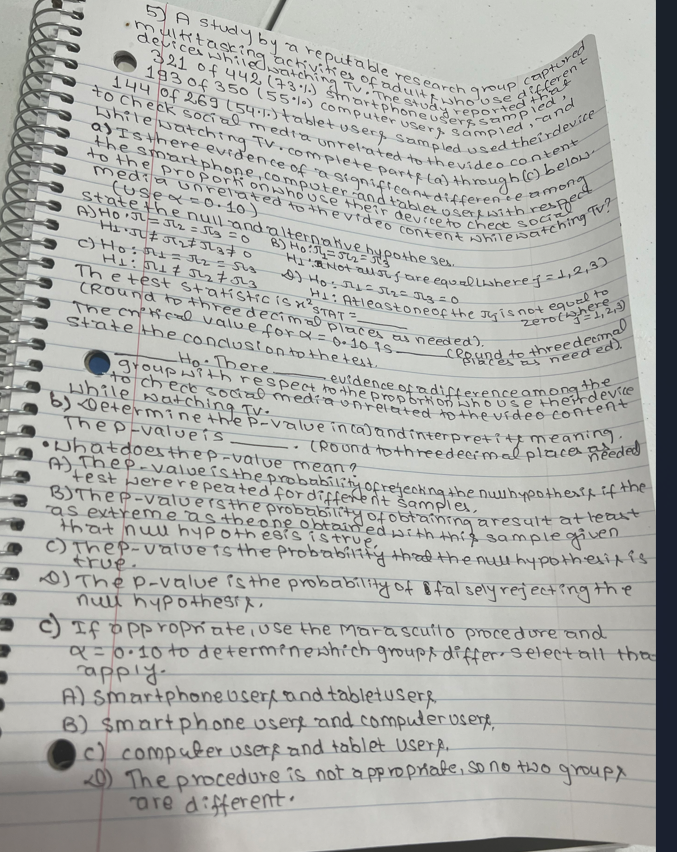 5) A study by a reputable research group captured
multitasking activities of adults who use different
devices while watching TV. The study reported that
321 of 442 (73%) smartphone users sampled,
193 of 350 (55%) computer users sampled, and
144 of 269 (54%) tablet users sampled used their device
to check social media unrelated to the video content
while watching TV. complete parts (a) through (c) below.
a) Is there evidence of a significant difference among
the smartphone, computer, and tablet users with respect
to the proportion who use their device to check social
media unrelated to the video content while watching TV?
(use α = 0.10)
state the null and alternative hypotheses.
A) H0: π1 = π2 = π3 = 0
H1: π1 ≠ π2 ≠ π3 ≠ 0
B) H0: π1 = π2 = π3
H1: Not all πj are equal (where j = 1,2,3)
C) H0: π1 = π2 = π3
H1: π1 ≠ π2 ≠ π3
D) H0: π1 = π2 = π3 = 0
H1: At least one of the πj is not equal to
zero (where j = 1,2,3)
The test statistic is x² STAT = ____
(Round to three decimal places as needed).
The critical value for α = 0.10 is ____ (Round to three decimal
places as needed).
state the conclusion to the test.
____ H0. There ____ evidence of a difference among the
group with respect to the proportion who use their device
to check social media unrelated to the video content
while watching TV.
b) Determine the p-value in (a) and interpret its meaning.
The p-value is ____. (Round to three decimal places as needed
• What does the p-value mean?
A) The p-value is the probability of rejecting the null hypothesis if the
test were repeated for different samples.
B) The p-value is the probability of obtaining a result at least
as extreme as the one obtained with this sample given
that null hypothesis is true.
C) The p-value is the probability that the null hypothesis is
true.
D) The p-value is the probability of falsely rejecting the
null hypothesis.
c) If appropriate, use the Marascuilo procedure and
α = 0.10 to determine which groups differ. select all tha
apply.
A) smartphone users and tablet users
B) smartphone users and computer users.
c) computer users and tablet users.
D) The procedure is not appropriate, so no two groups
are different.